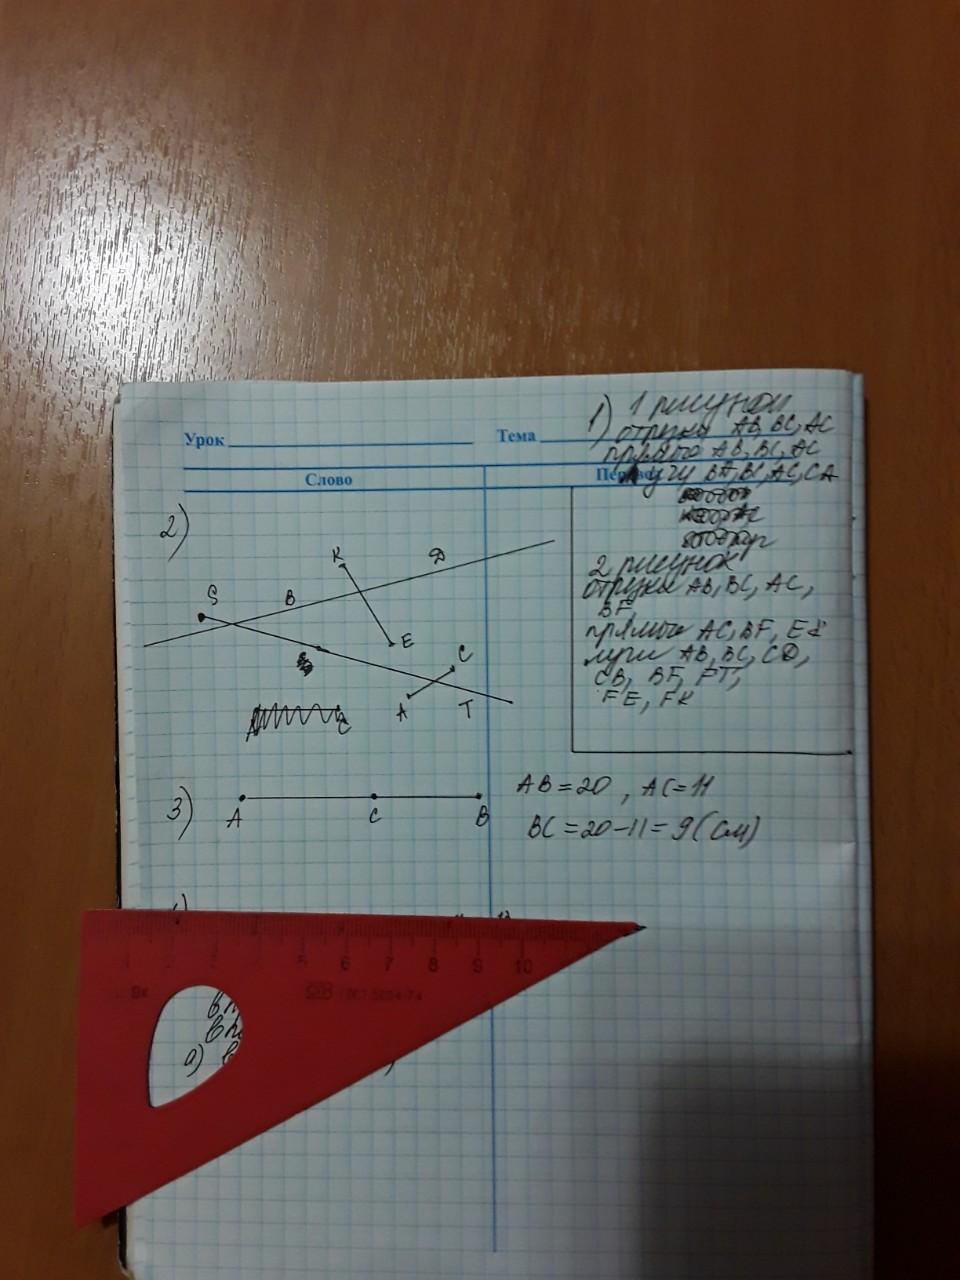 1) 1 рисунок
отрезки AB, BC, AC
Урок
Тема
прямые AB, BC, AC
лучи BA, BC, AC, CA
Слово
2)
2 рисунок
отрезки AB, BC, AC,
BF,
прямые AC, BF, EK
лучи AB, BC, CD,
CB, BF, FT,
FE, FK
K
D
S
B
E
C
A
T
3)
A
C
B
AB = 20 , AC = 11
BC = 20 - 11 = 9 (см)
5 6 7 8 9 10
а)